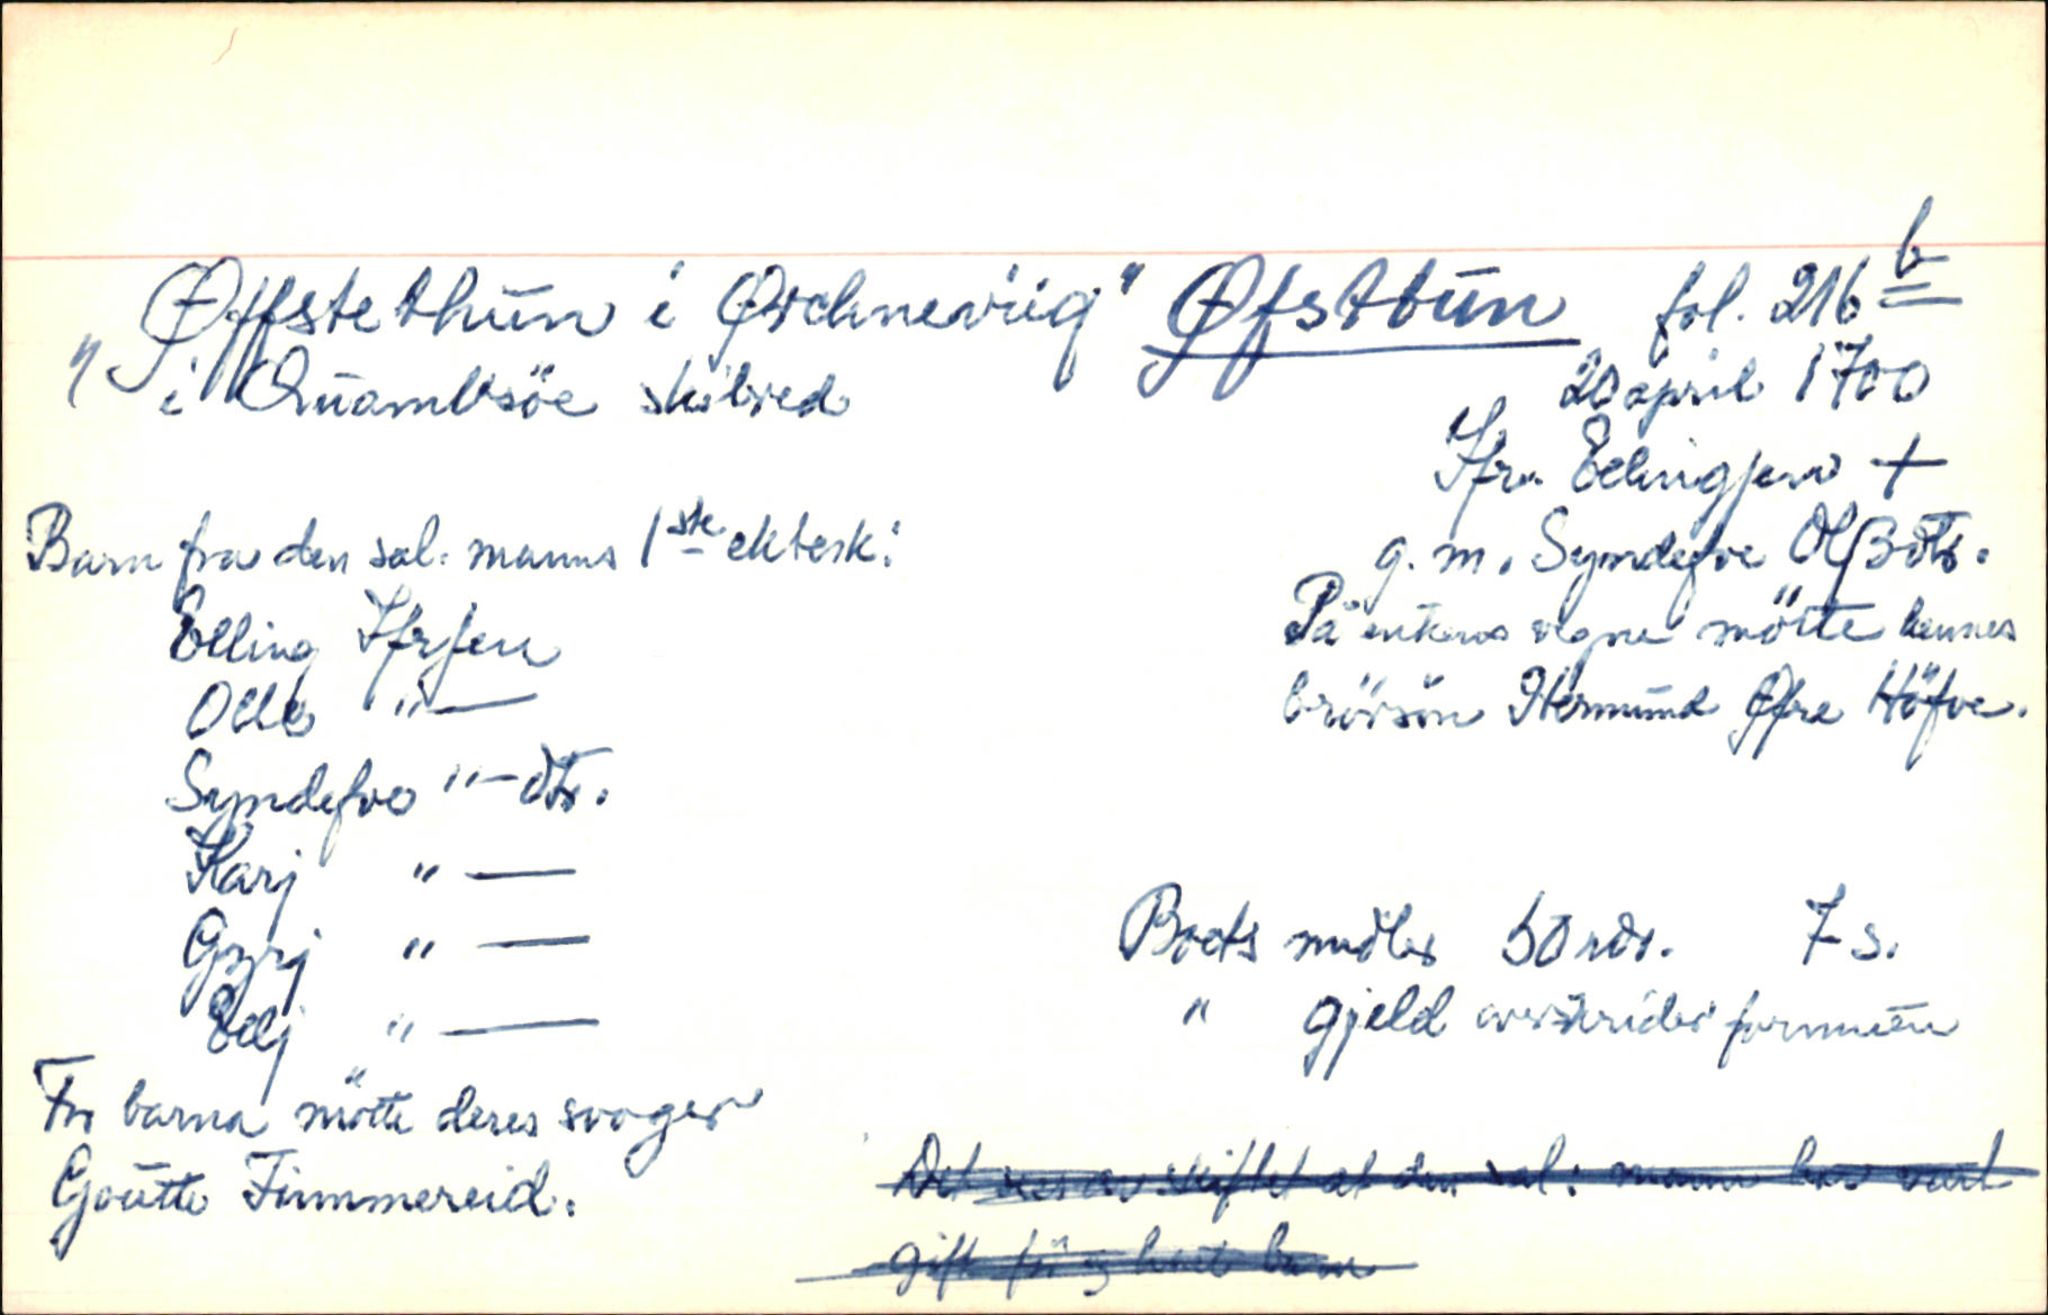 "Øffstethūn i Ørchneviig" Øfsttūn fol. 216 b
i Quambsöe skibred
20 april 1700
Ifr. Ellingsen +
g. m. Syndefve Olßdtr.
På enkens vegne mötte hennes
brörsön Hermund Øfre Höfve.
Barn fra den sal. manns 1ste ektesk:
Elling Ifrsen
Olle " —
Syndefve " — dtr.
Karj " —
Gyrj " —
Elj " —
For barna mötte deres svoger
Goutte Fimmereid.
Boets midler 50 rdr. 7 s.
" gjeld overskrider formuen
Det sees av skiftet at den sal: mann har vært
gift før og hatt barn